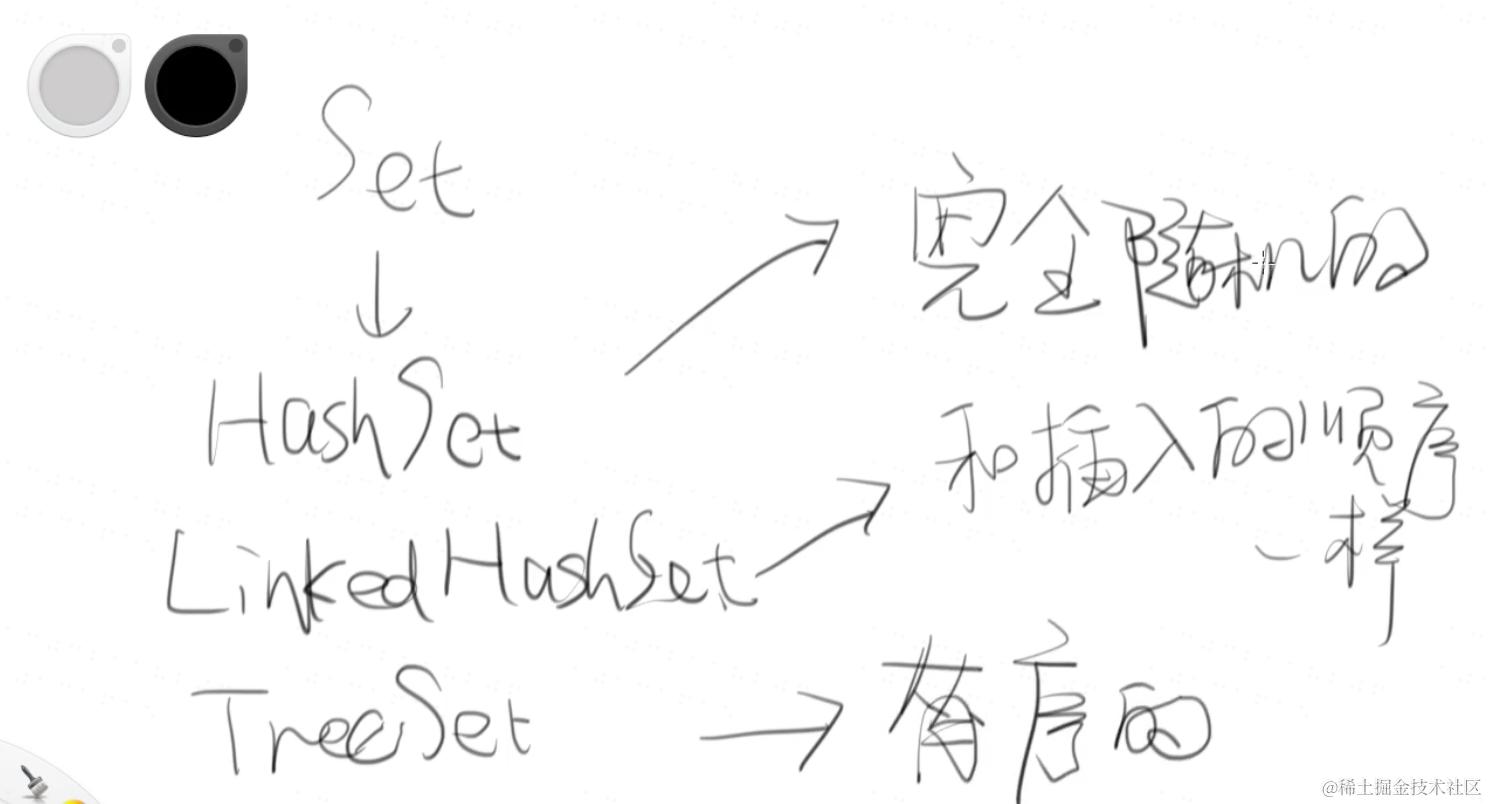 Set
HashSet
完全随机的
LinkedHashSet
和插入的顺序
一样
TreeSet
有序的
@稀土掘金技术社区